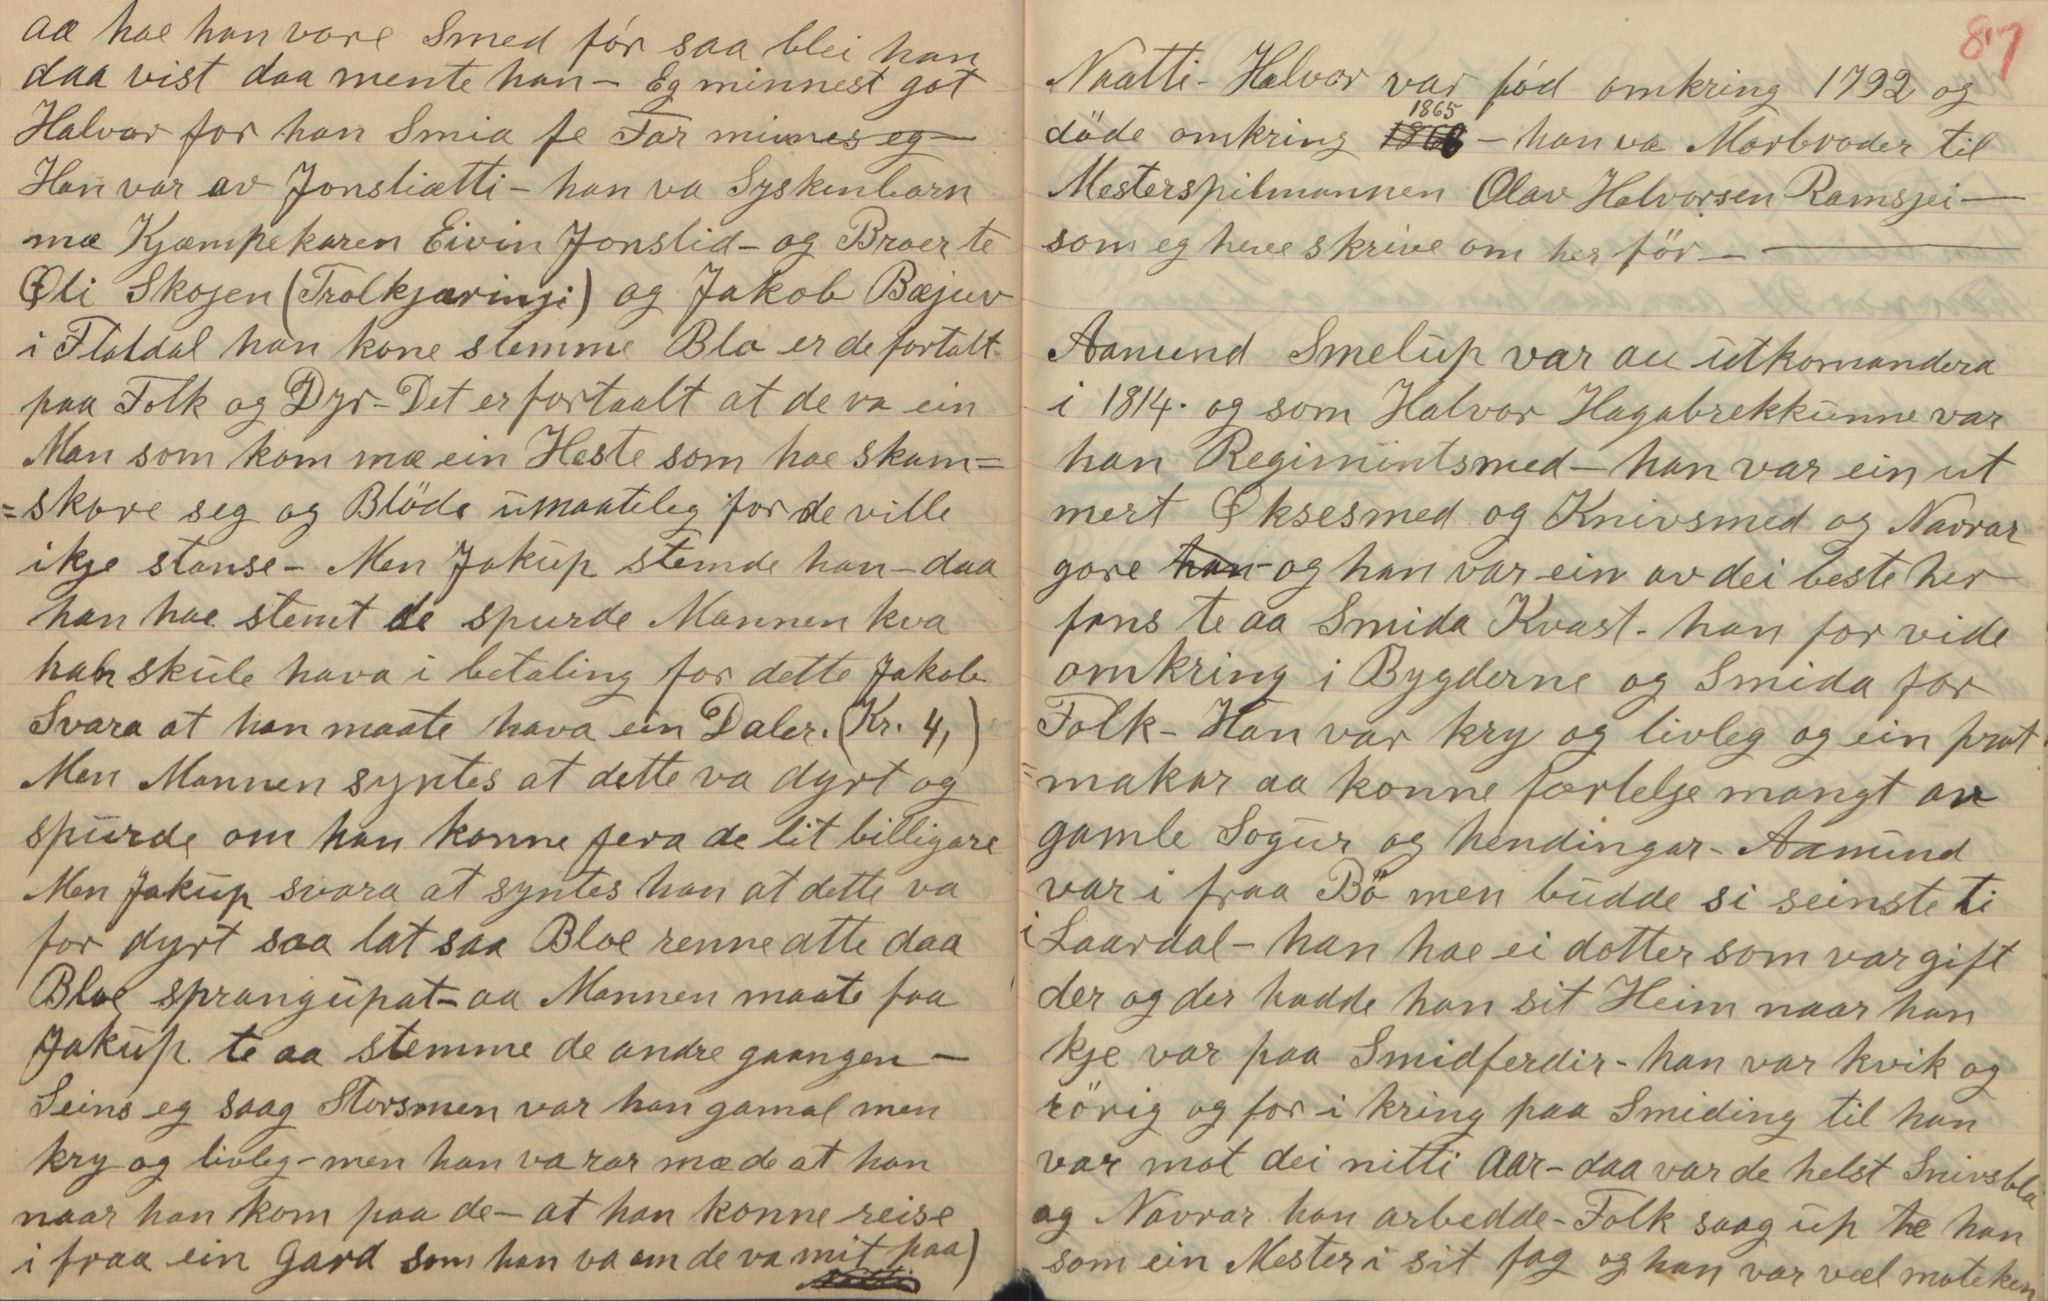 aa hae han vore Smed för saa blei han
daa vist daa mente han - Eg minnest got
Halvor for han Smia fe Far minnes eg -
Han var av Jonsliætti - han va Syskenbarn
mæ Kjæmpekaren Eivin Jonslid - og Broer te
Øli Skojen (Trolkjæringi) og Jakob Bæjuv
i Flatdal han kone stemme Blo er de fortalt
paa Folk og Dyr - Det er fortaalt at de va ein
Man som kom mæ ein Heste som hae skam=
=skore seg og Blöde umaateleg for de ville
ikje stanse - Men Jakup stemde han - daa
han hae stemt de spurde Mannen kva
han skule hava i betaling for dette Jakob
Svara at han maate hava ein Daler. (Kr. 4,)
Men Mannen syntes at dette va dyrt og
spurde om han konne jera de lit billigare
Men Jakup svara at syntes han at dette va
for dyrt saa lat saa Bloe renne atte daa
Bloe sprang upat - aa Mannen maate faa
Jakup te aa stemme de andre gaangen -
Seins eg saag Storsmen var han gamal men
kry og livleg - men han va rar mæ de at han
naar han kom paa de - at han konne reise
i fraa ein Gard som han va om de va mit paa)
Natti
87
Naatti - Halvor var föd omkring 1792 og
1865
döde omkring 1868 - han va Morbroder til
Mesterspilmannen Olav Halvorsen Ramsjei -
som eg heve skrive om her för -
Aamund Smelup var au utkomandera
i 1814. og som Halvor Hagabrekkunne var
han Regimintsmed - han var ein ut
mert Øksesmed og Knivsmed og Navrar
gore han - og han var ein av dei beste her
fans te aa Smida Kvast - han for vide
omkring i Bygderne og Smida for
Folk - Han var kry og livleg og ein prat
=makar aa konne fortelje mangt av
gamle Sogur og hendingar - Aamund
var i fraa Bö men budde si seinste ti
i Laardal - han hae ei dotter som var gift
der og der hadde han sit Heim naar han
kje var paa Smidferdir - han var kvik og
rörig og for i kring paa Smiding til han
var mot dei nitti Aar - daa var de helst Snivsbla
og Navrar han arbedde - Folk saag up te han
som ein Mester i sit fag og han var væl moteken